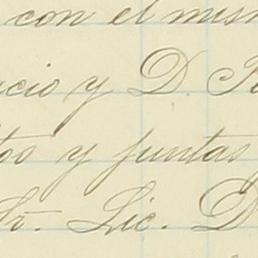 con el mism
cio y D. R
tos y juntas
Sr. Lic. D